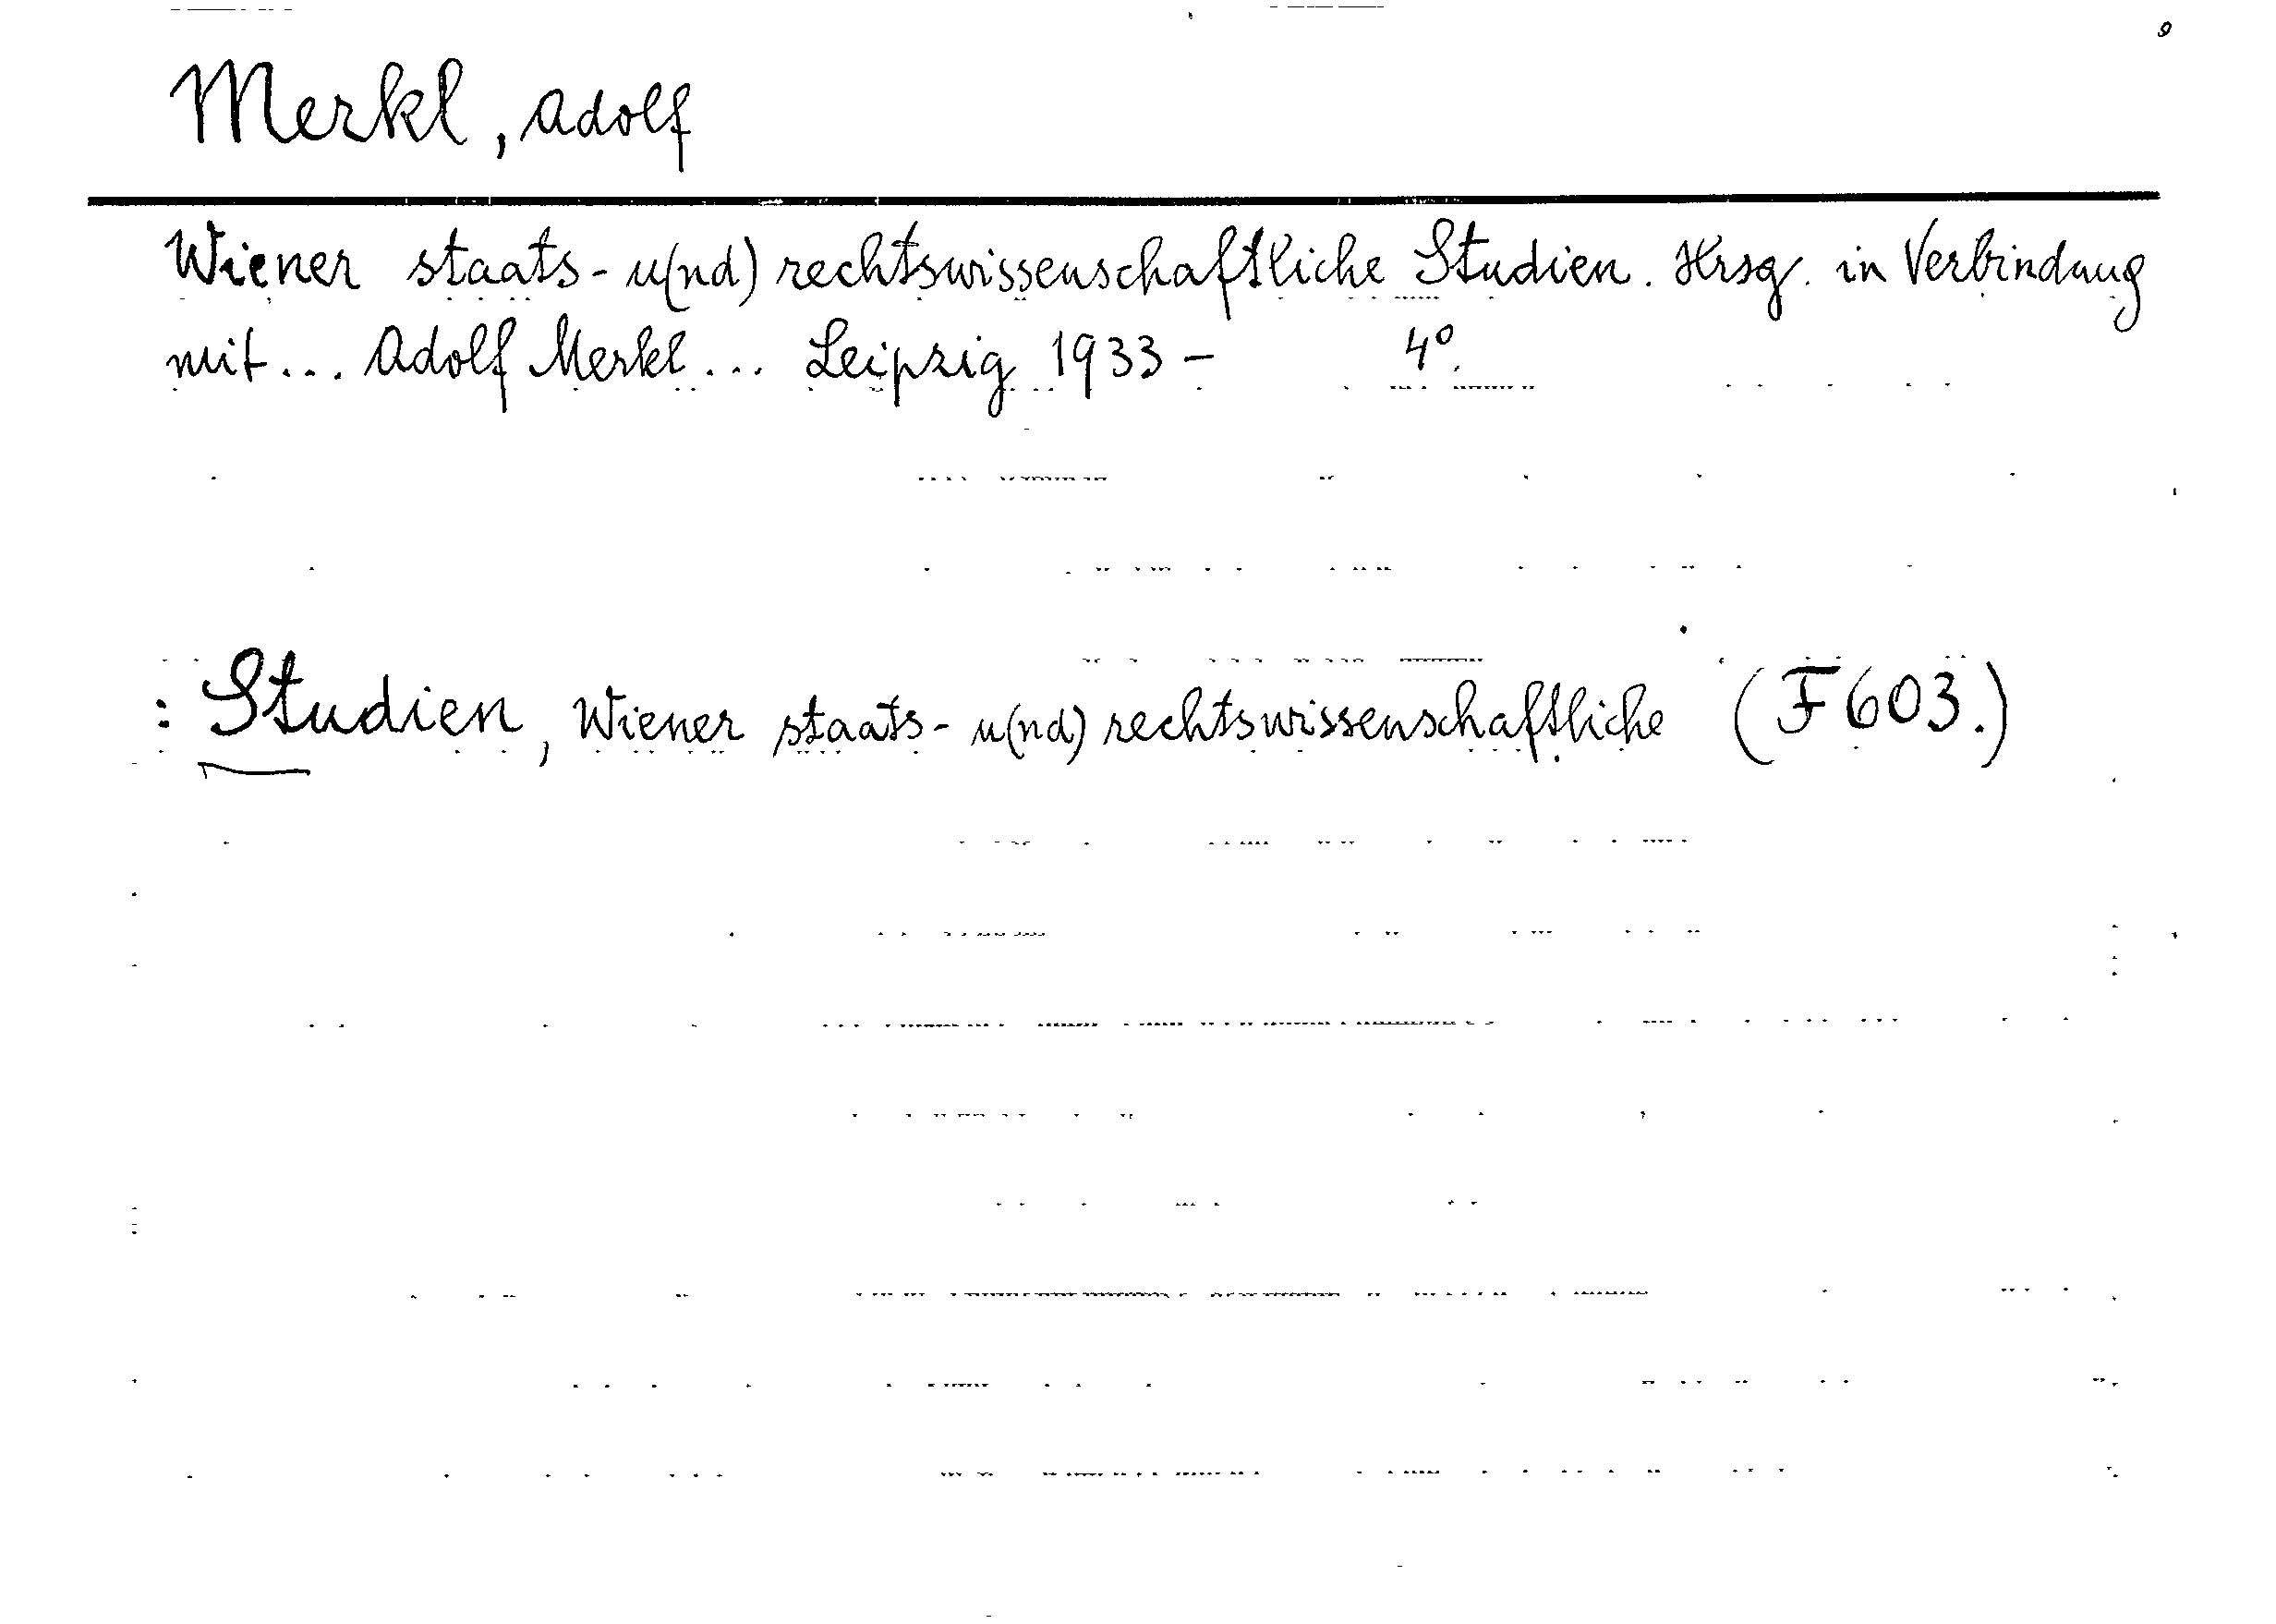 9
Merkl, Adolf
Wiener staats- u(nd) rechtswissenschaftliche Studien. Hrsg. in Verbindung
mit... Adolf Merkl... Leipzig 1933 - 4º.
: Studien, Wiener staats- u(nd) rechtswissenschaftliche (F603.)